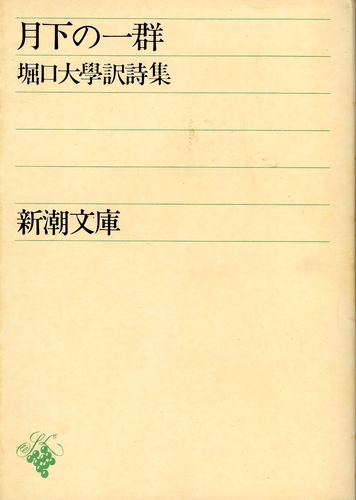 月下の一群
堀口大學訳詩集
新潮文庫